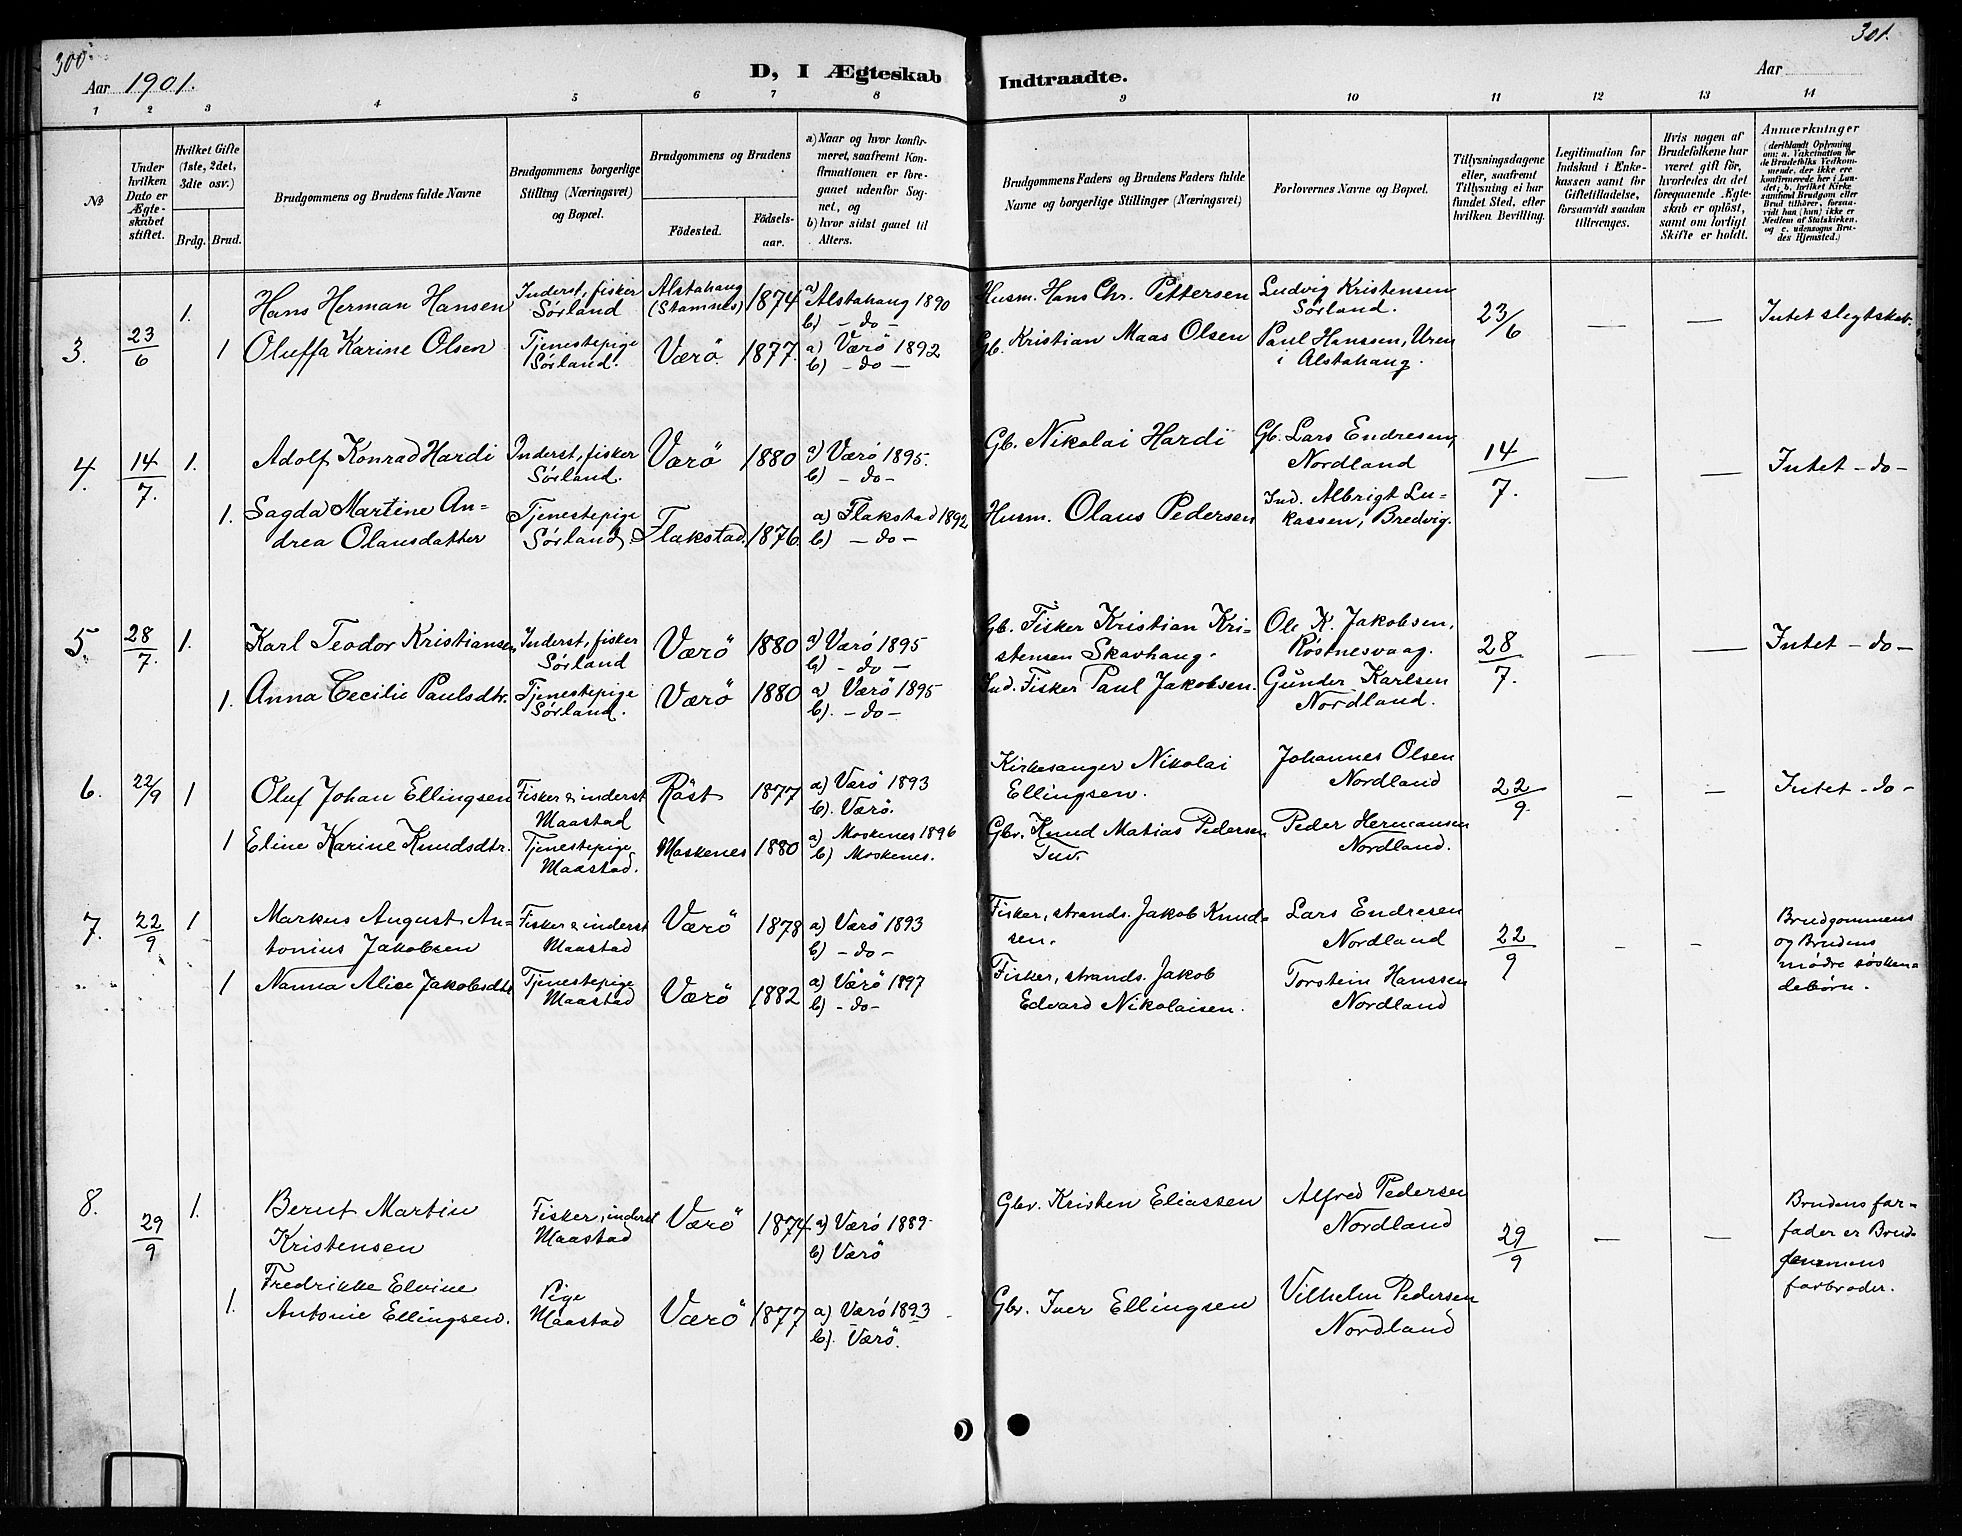 300.
301.
Aar 1901.
D, I Ægteskab Indtraadte.
Aar
1 2 3 4 5 6 7 8 9 10 11 12 13 14
№
Under hvilken Dato er Ægte-skabet stiftet.
Hvilket Gifte (1ste, 2det, 3die osv.)
Brdg. Brud.
Brudgommens og Brudens fulde Navne
Brudgommens borgerlige Stilling (Næringsvei) og Bopæl.
Brudgommens og Brudens
Fødested.
Fødsels-aar.
a) Naar og hvor konfir-meret, saafremt Kon-firmationen er fore-gaaet udenfor Sog-net, og
b) hvor sidst gaaet til Alters.
Brudgommens Faders og Brudens Faders fulde Navne og borgerlige Stillinger (Næringsvei)
Forlovernes Navne og Bopæl.
Tillysningsdagene eller, saafremt Tillysning ei har fundet Sted, efter hvilken Bevilling.
Legitimation for Indskud i Enke-kassen samt for Giftetilladelse, forsaavidt saadan tiltrænges.
Hvis nogen af Brudefolkene har været gift før, hvorledes da det foregaaende Ægte-skab er opløst, samt om lovligt Skifte er holdt.
Anmærkninger (deriblandt Oplysning om: a. Vakcination for de Brudefolks Vedkom-mende, der ikke ere konfirmerede her i Lan-det; b. hvilket Kirke-samfund Brudgom eller Brud tilhører, forsaa-vidt han (hun) ikke er Medlem af Statskirken, og c. udensogns Bru-des Hjemsted.)
3. 23/6 1. Hans Herman Hansen Inderst, fisker Sørland Alstahaug (Stamnes) 1874 a) Alstahaug 1890 b) - do - Husm. Hans Chr. Pettersen Ludvig Kristensen Sørland. 23/6 — — Intet slegtskab.
1 Oluffa Karine Olsen Tjenestepige Sørland. Værö. 1877. a) Værö 1892 b) - do - Gb. Kristian Maas Olsen Paul Hanssen, Uren i Alstahaug.
4. 14/7. 1. Adolf Konrad Hardi Inderst, fisker Sørland. Værö 1880 a) Værö 1895. b) - do - Gb. Nikolai Hardi Gb. Lars Endresen, Nordland 14/7. — — Intet - do -
1. Sagda Martine An-drea Olausdatter Tjenestepige Sørland. Flakstad. 1876. a) Flakstad 1892 b) - do - Husm. Olaus Pedersen Ind. Albrigt Lu-kassen, Bredvig.
5. 28/7. 1. Karl Teodor Kristiansen Inderst, fisker Sørland Værö 1880 a) Værö 1895 b) - do - Gb. Fisker Kristian Kri-stensen Skavhaug. Ole K. Jakobsen, Røstnesvaag. 28/7. — — Intet - do -
1. Anna Cecilie Paulsdtr. Tjenestepige Sørland. Værö 1880 a) Værö 1895 b). - do - Ind. Fisker Paul Jakobsen. Gunder Karlsen Nordland.
6. 22/9 1 Oluf Johan Ellingsen Fisker & inderst Maastad Röst 1877 a) Værö 1893 b). Værö. Kirkesanger Nikolai Ellingsen. Johannes Olsen Nordland 22/9. — — Intet - do -
1 Eline Karine Knudsdtr. Tjenestepige Maastad. Moskenes 1880 a) Moskenes 1896 b) Moskenes. Gbr. Knud Matias Pedersen Tuv. Peder Hermansen Nordland.
7. 22/9 1 Markus August An-tonius Jakobsen Fisker & inderst Maastad Værö 1878 a) Værö 1893 b) - do - Fisker, strands. Jakob Knud-sen. Lars Endresen Nordland 22/9 — — Brudgommens og Brudens mødre søsken-debörn.
1 Nanna Alice Jakobsdtr Tjenestepige Maastad Værö 1882 a) Værö 1897 b) - do - Fisker, strands. Jakob Edvard Nikolaisen. Torstein Hanssen Nordland
8. 29/9 1. Bernt Martin Kristensen Fisker, inderst Maastad Værö 1874 a) Værö 1889 b) Værö Gbr. Kristen Eliassen Alfred Pedersen Nordland 29/9 — — Brudens far-fader er Brud-gommens farbroder.
1. Fredrikke Elvine Antonie Ellingsen. Pige Maastad Værö 1877 a) Værö 1893 b). Værö. Gbr. Iver Ellingsen Vilhelm Pedersen Nordland